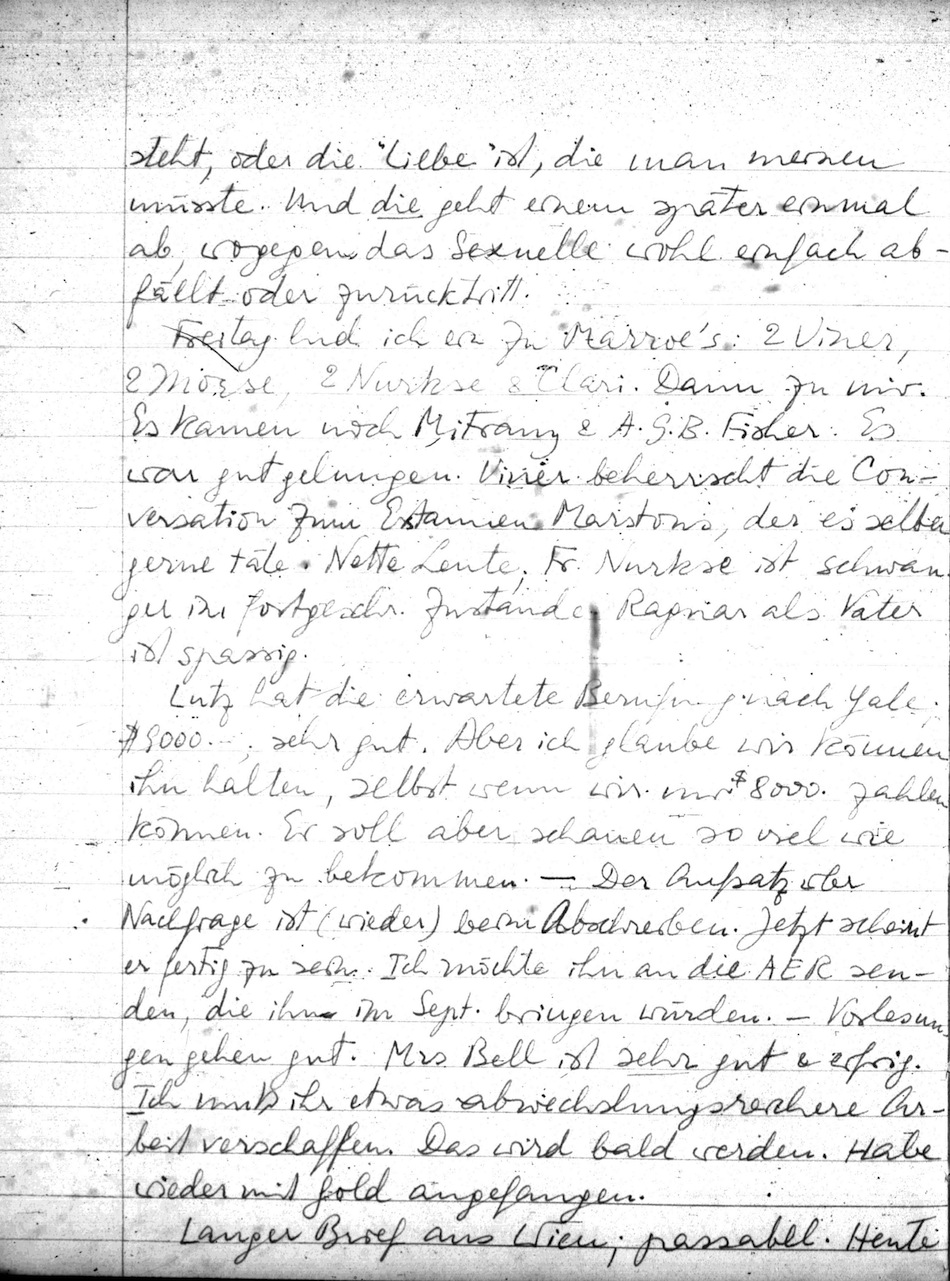 steht, oder die "Liebe" ist, die man meinen
müsste. Und die geht einem später einmal
ab, wogegen das Sexuelle wohl einfach ab-
fällt oder zurücktritt.
Freitag lud ich ein zu Marroe's: 2 Viner,
2 Morse, 2 Nurkse & Clari. Dann zu mir.
Es kamen noch Mitrany & A.G.B. Fisher. Es
war gut gelungen. Viner beherrscht die Con-
versation zum Erstaunen Marstons, der es selber
gerne täte. Nette Leute, Fr. Nurkse ist schwan-
ger im fortgeschr. Zustande. Ragnar als Vater
ist spassig.
Lutz hat die erwartete Berufung nach Yale,
$9000.-, sehr gut. Aber ich glaube wir können
ihn halten, selbst wenn wir nur $8000. zahlen
können. Er soll aber schauen so viel wie
möglich zu bekommen. — Der Aufsatz über
Nachfrage ist (wieder) beim Abschreiben. Jetzt scheint
er fertig zu sein. Ich möchte ihn an die AER sen-
den, die ihn im Sept. bringen würden. — Vorlesun-
gen gehen gut. Mrs Bell ist sehr gut & eifrig.
Ich muß ihr etwas abwechslungsreichere Ar-
beit verschaffen. Das wird bald werden. Habe
wieder mit Gold angefangen.
Langer Brief aus Wien; passabel. Heute